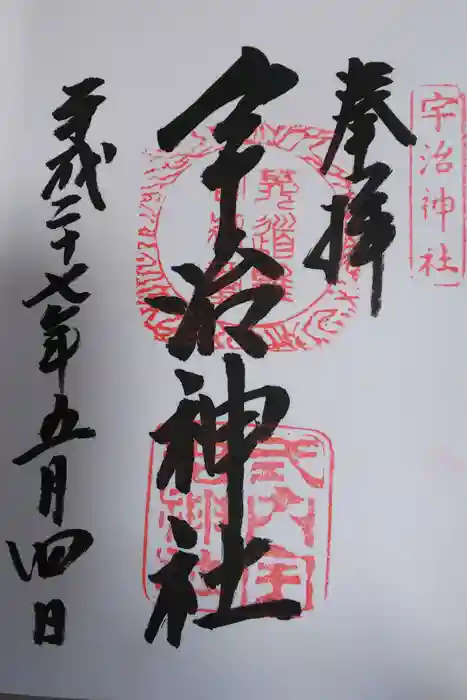 宇治神社
奉拝
宇治神社
式内宇
治神社
平成二十七年五月四日